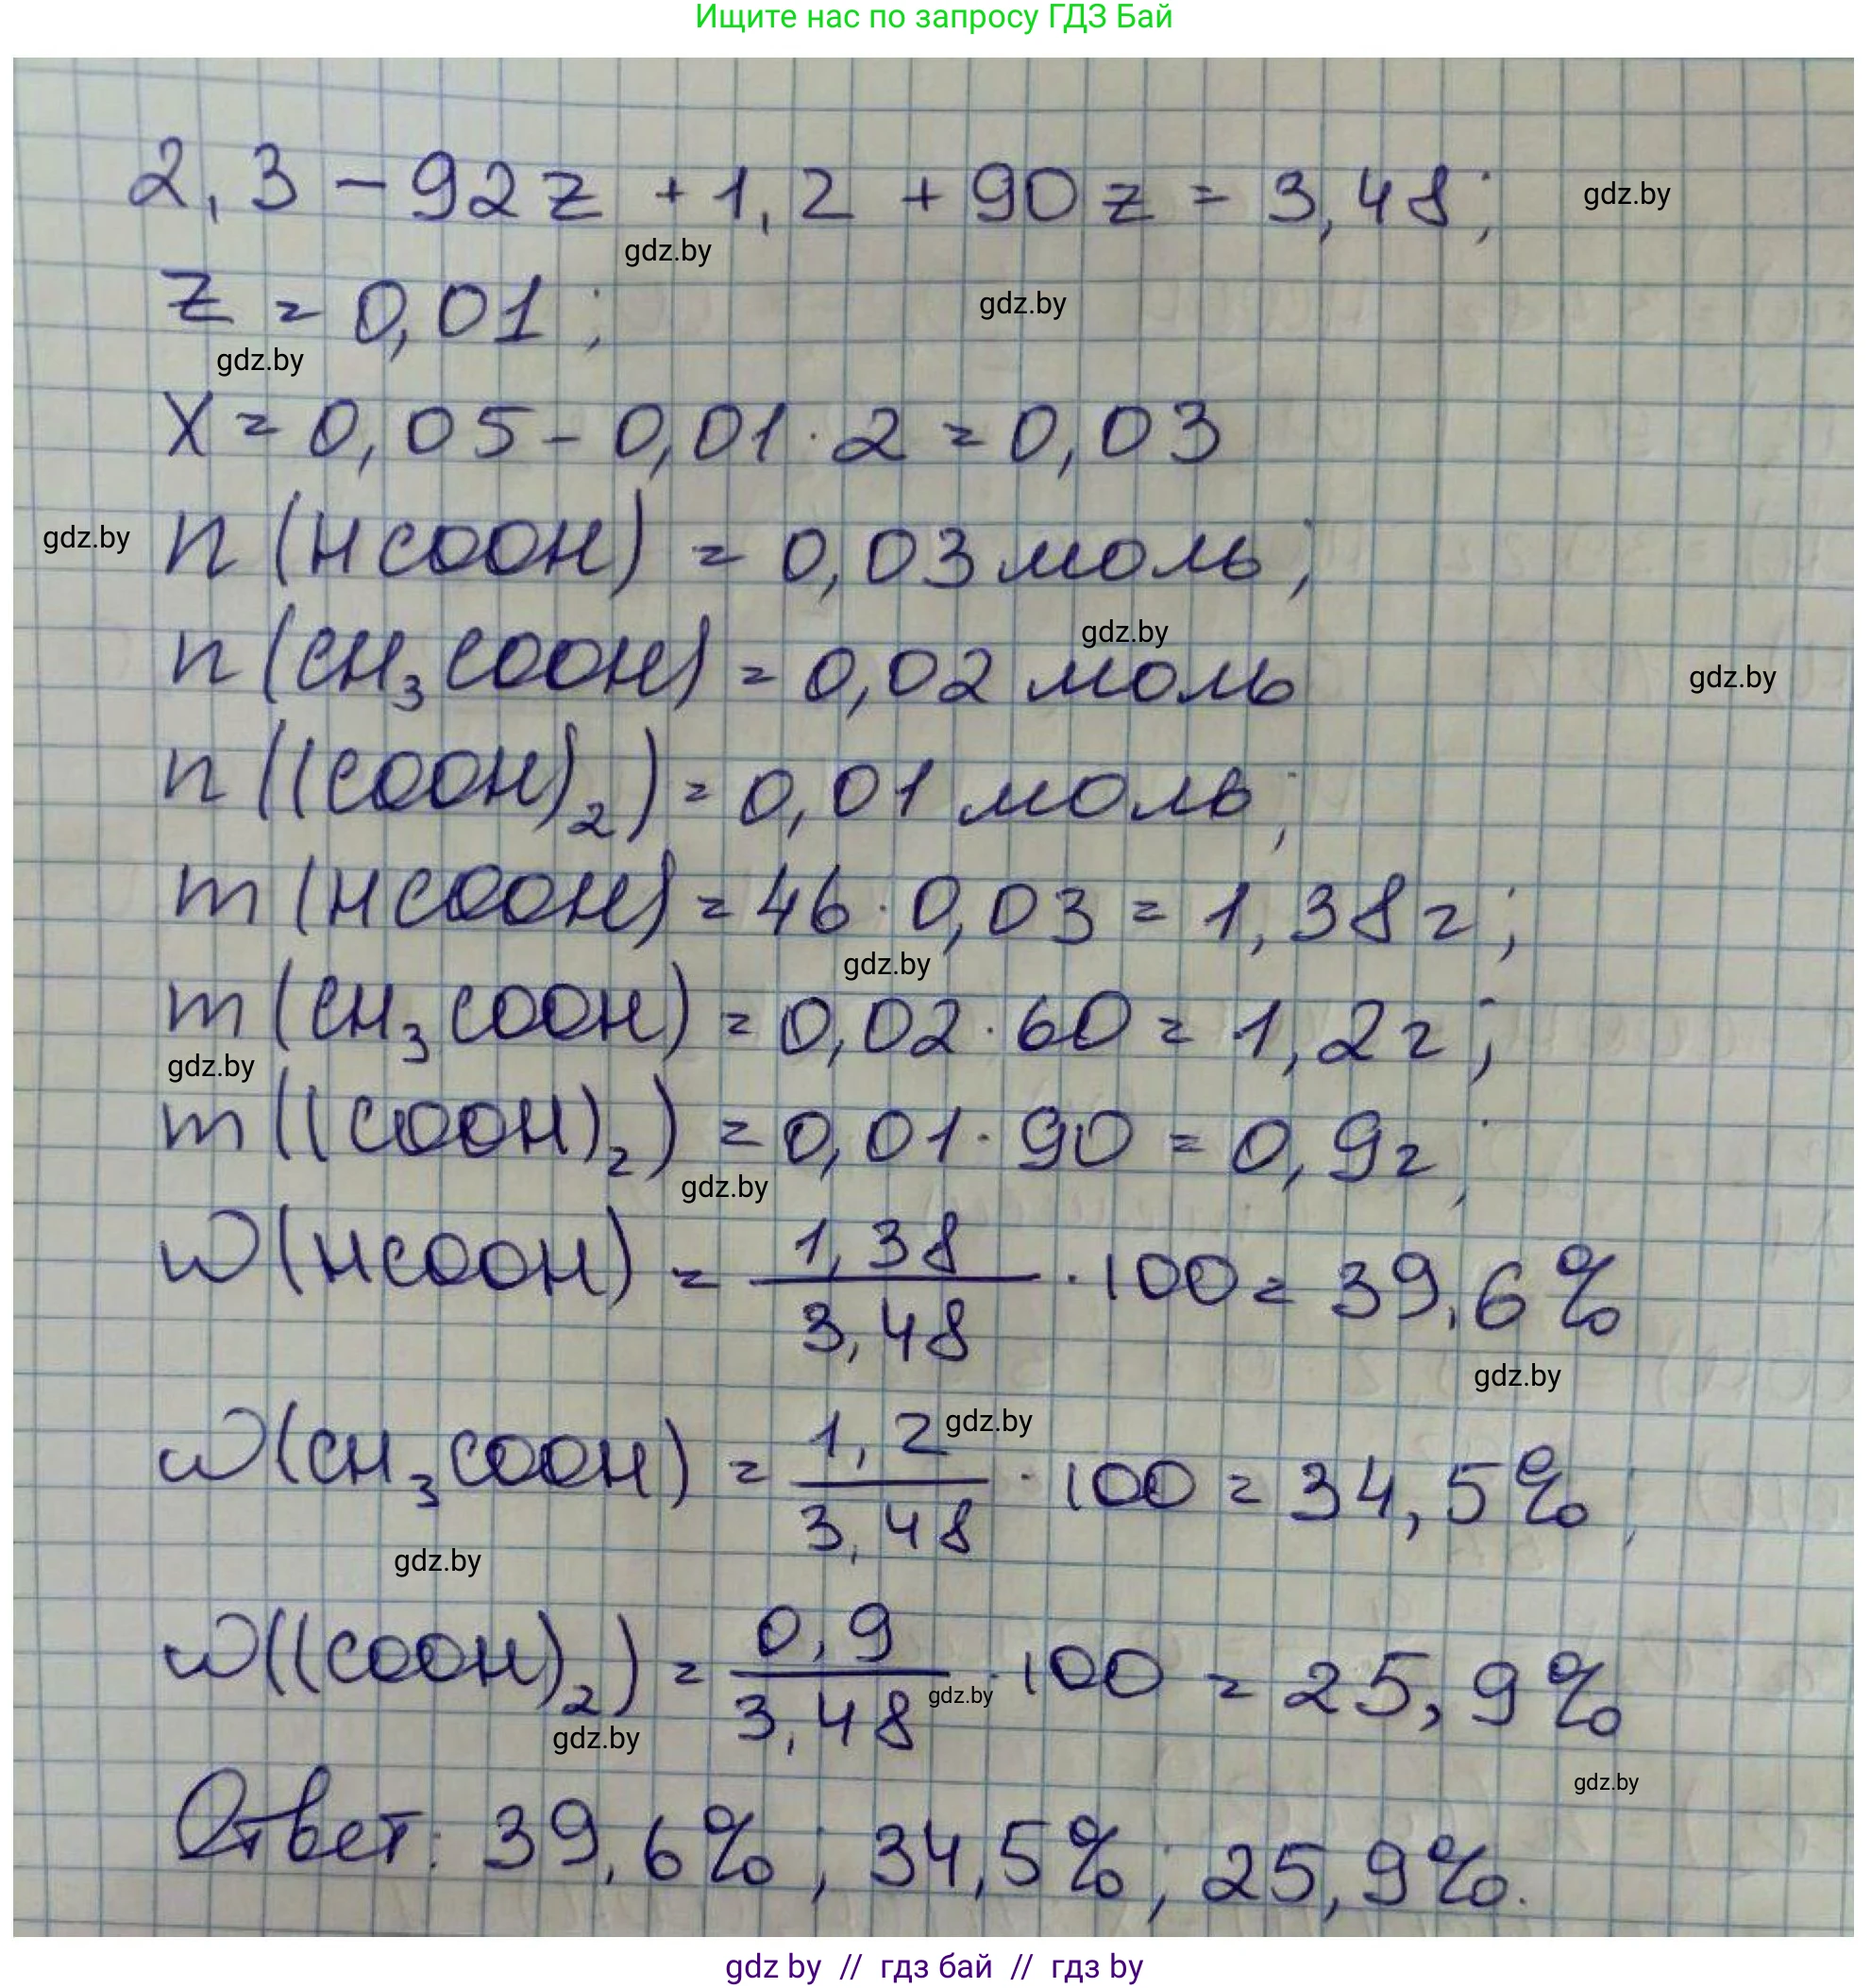 Ищите нас по запросу ГДЗ Бай
2,3 - 92z + 1,2 + 90z = 3,48; gdz.by
gdz.by
z = 0,01; gdz.by
gdz.by
x = 0,05 - 0,01 · 2 = 0,03
gdz.by n(HCOOH) = 0,03 моль;
gdz.by
n(CH₃COOH) = 0,02 моль gdz.by
n((COOH)₂) = 0,01 моль;
m(HCOOH) = 46 · 0,03 = 1,38г;
gdz.by
m(CH₃COOH) = 0,02 · 60 = 1,2г;
gdz.by
m((COOH)₂) = 0,01 · 90 = 0,9г;
gdz.by
w(HCOOH) = 1,38/3,48 · 100 = 39,6%
gdz.by
w(CH₃COOH) = 1,2/3,48 · 100 = 34,5%;
gdz.by
gdz.by
w((COOH)₂) = 0,9/3,48 · 100 = 25,9%
gdz.by
gdz.by
gdz.by
Ответ: 39,6%; 34,5%; 25,9%.
gdz by // гдз бай // гдз by